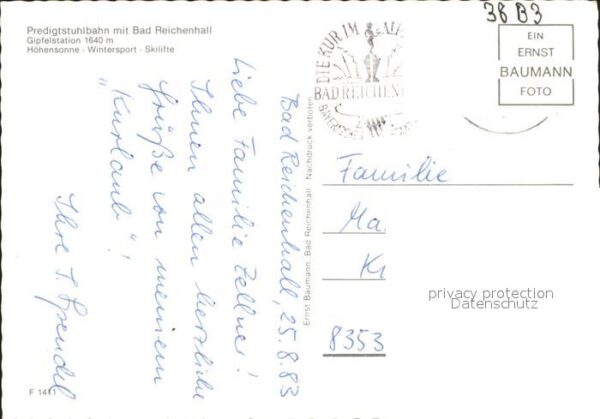 Predigtstuhlbahn mit Bad Reichenhall
Gipfelstation 1640 m
Höhensonne - Wintersport - Skilifte
38 B3
EIN
ERNST
BAUMANN
FOTO
DIE KUR IM
BAD REICHEN
Bad Reichenhall, 25.8.83
Liebe Familie Zellner!
Ihnen allen herzliche
Grüße von meinem
"Kurlaub"!
Ihre
Ernst Baumann, Bad Reichenhall - Nachdruck verboten
Familie
Ma
Kr
8353
privacy protection
Datenschutz
F 1411